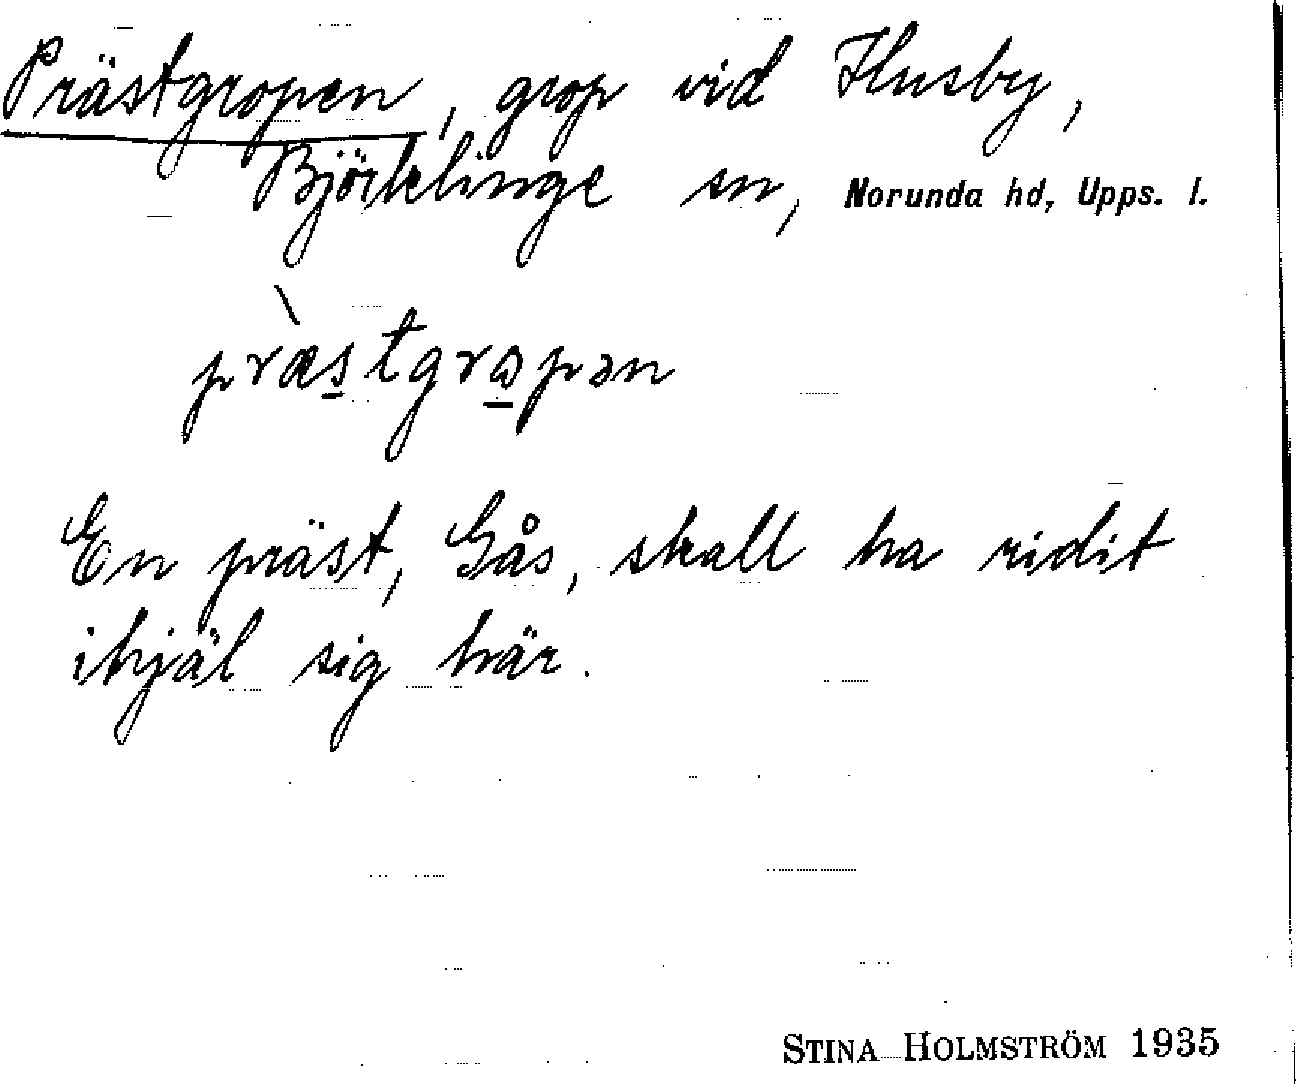 Prästgropen, grop vid Husby,
Björklinge sn, Norunda hd, Upps. l.
præ̀s̲tgrɷ̲pən
En präst, Gås, skall ha ridit
ihjäl sig här.
STINA HOLMSTRÖM 1935